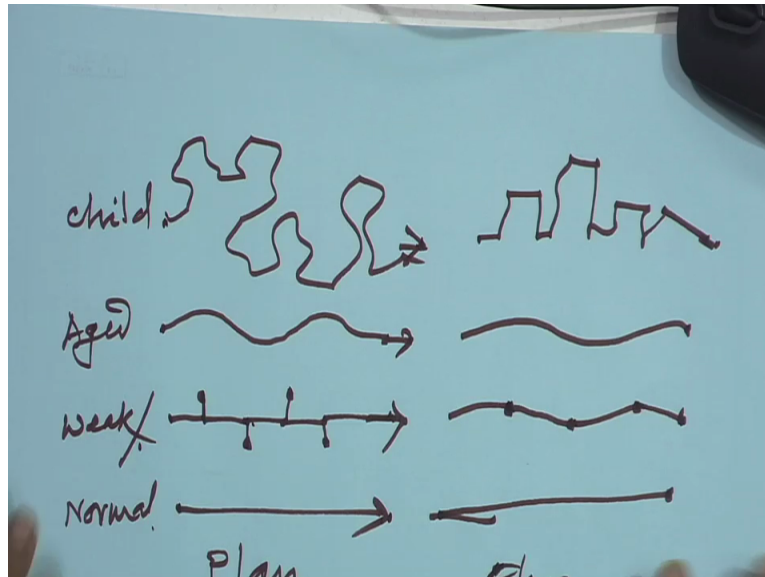 child.
Aged
weak/
Normal.
Plan